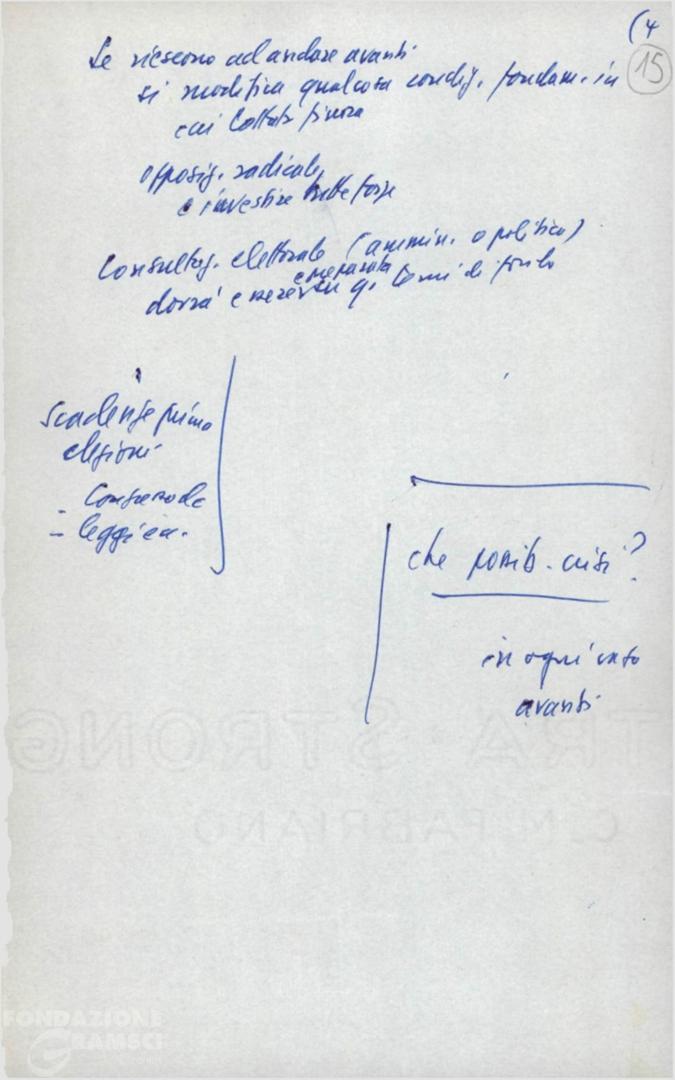 (4
15
Se riescono ad andare avanti
si modifica qualcosa condiz. fondam. in
cui lottato finora
opposiz. radicale
e investire tutte forze
Consultaz. elettorale (ammin. o politica)
preparata
dovrà essere su q. temi di fondo
scadenze prima
elezioni
-
- leggi ecc.
che possib. crisi?
in ogni caso
avanti
TRA STRONG
C.M. FABRIANO
FONDAZIONE
GRAMSCI